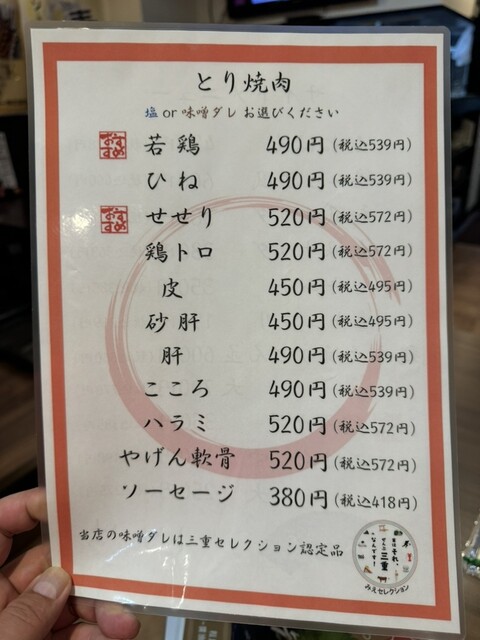 とり焼肉
塩 or 味噌ダレ お選びください
おすすめ 若鶏 490円 (税込539円)
ひね 490円 (税込539円)
おすすめ せせり 520円 (税込572円)
鶏トロ 520円 (税込572円)
皮 450円 (税込495円)
砂肝 450円 (税込495円)
肝 490円 (税込539円)
こころ 490円 (税込539円)
ハラミ 520円 (税込572円)
やげん軟骨 520円 (税込572円)
ソーセージ 380円 (税込418円)
当店の味噌ダレは三重セレクション認定品
実はそれ、
ぜんぶ三重
なんです!
みえセレクション